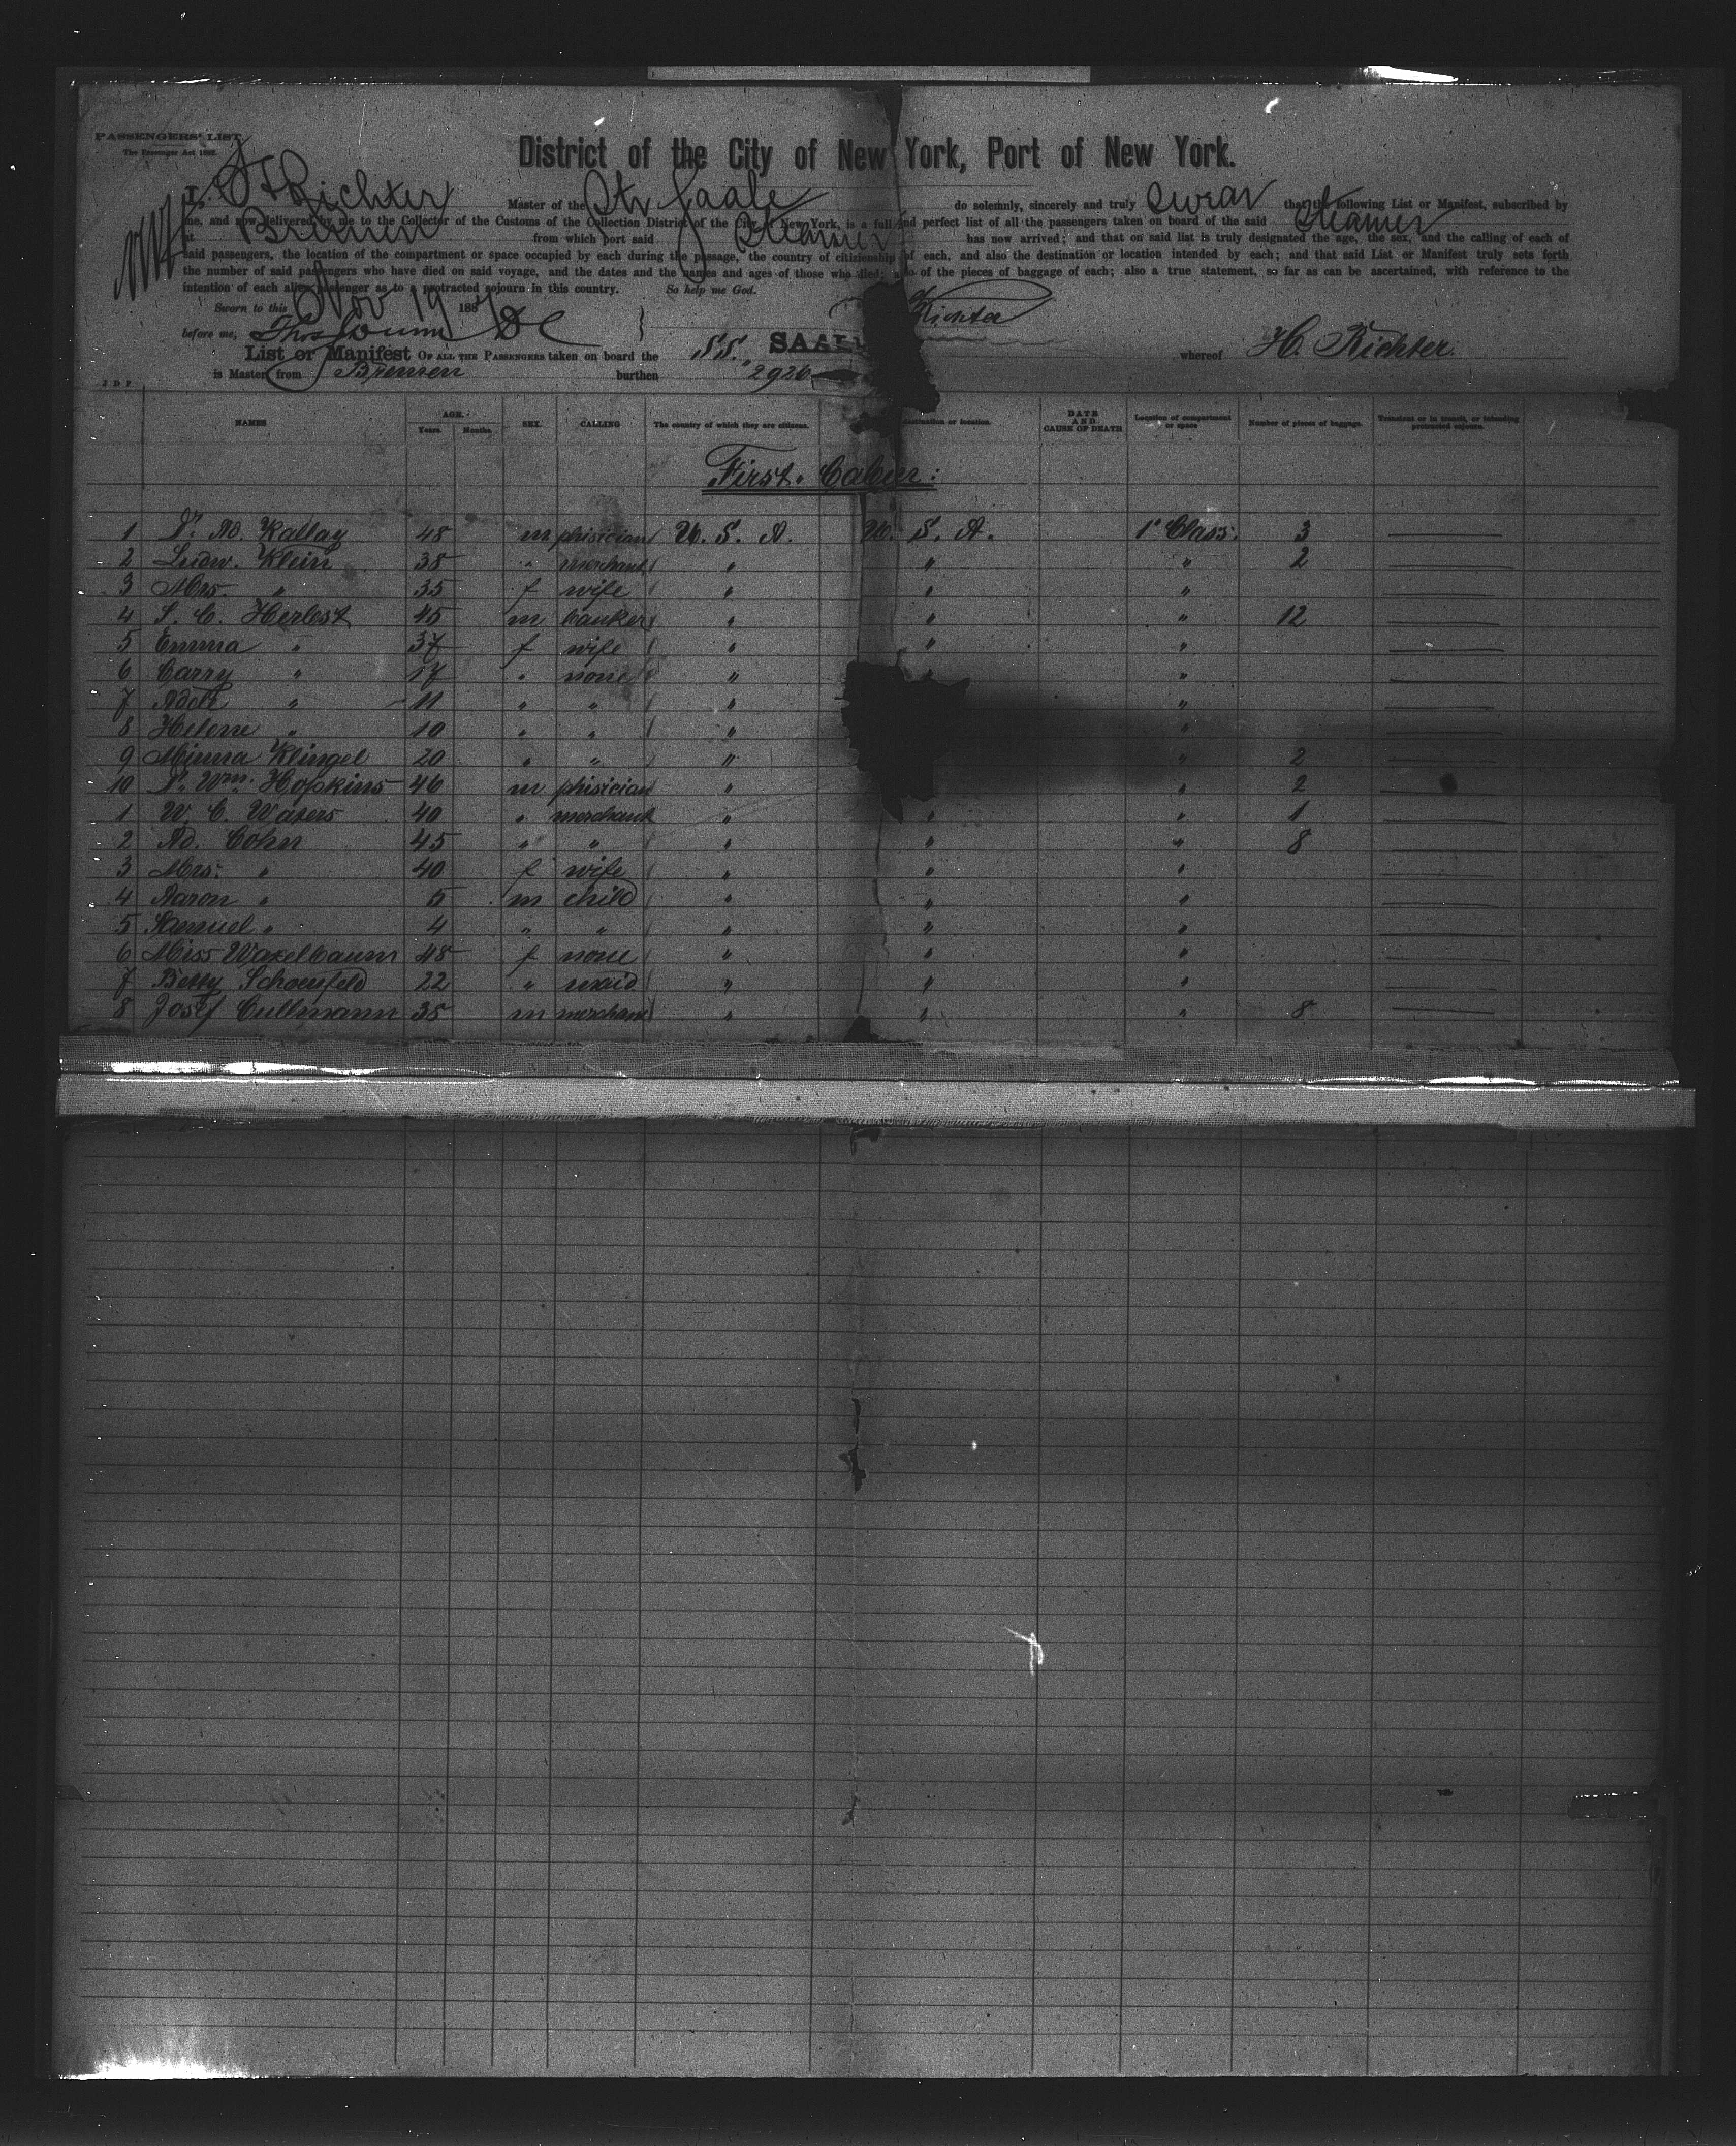 PASSENGERS' LIST.
The Passenger Act 1882.
District of the City of New York, Port of New York.
I, H Richter Master of the Str Saale do solemnly, sincerely and truly swear that the following List or Manifest, subscribed by
me, and now delivered by me to the Collector of the Customs of the Collection District of the City of New York, is a full and perfect list of all the passengers taken on board of the said Steamer
at Bremen from which port said Steamer has now arrived; and that on said list is truly designated the age, the sex, and the calling of each of
said passengers, the location of the compartment or space occupied by each during the passage, the country of citizenship of each, and also the destination or location intended by each; and that said List or Manifest truly sets forth
the number of said passengers who have died on said voyage, and the dates and the names and ages of those who died; also of the pieces of baggage of each; also a true statement, so far as can be ascertained, with reference to the
intention of each alien passenger as to a protracted sojourn in this country. So help me God.
Sworn to this Nov 19 188
Richter
before me, Thos Dunn DC
List or Manifest OF ALL THE PASSENGERS taken on board the SS. SAALE whereof H. Richter.
is Master, from Bremen burthen 2926
J D P
NAMES AGE. Years. Months. SEX. CALLING The country of which they are citizens. destination or location. DATE AND CAUSE OF DEATH Location of compartment or space Number of pieces of baggage. Transient or in transit, or intending protracted sojourn.
First. Cabin:
1 Dr. Ad. Kallay 48 m phisician U. S. A. U. S. A. 1st Class. 3
2 Ludw. Klein 38 " merchant " " " 2
3 Mrs. " 35 f wife " " "
4 S. C. Herbst 45 m banker " " " 12
5 Emma " 37 f wife " " "
6 Carry " 17 " none " " "
7 Adolf " 11 " " " "
8 Helene " 10 " " " "
9 Minna Klingel 20 " " " " 2
10 Dr. Wm. Hopkins 46 m phisician " " 2
1 W. C. Waters 40 " merchant " " " 1
2 Ad. Cohn 45 " " " " " 8
3 Mrs. " 40 f wife " " "
4 Aaron " 5 m child " " "
5 Samuel " 4 " " " " "
6 Miss Waxelbaum 48 f none " " "
7 Betty Schoenfeld 22 " maid " " "
8 Josef Cullmann 35 m merchant " " " 8